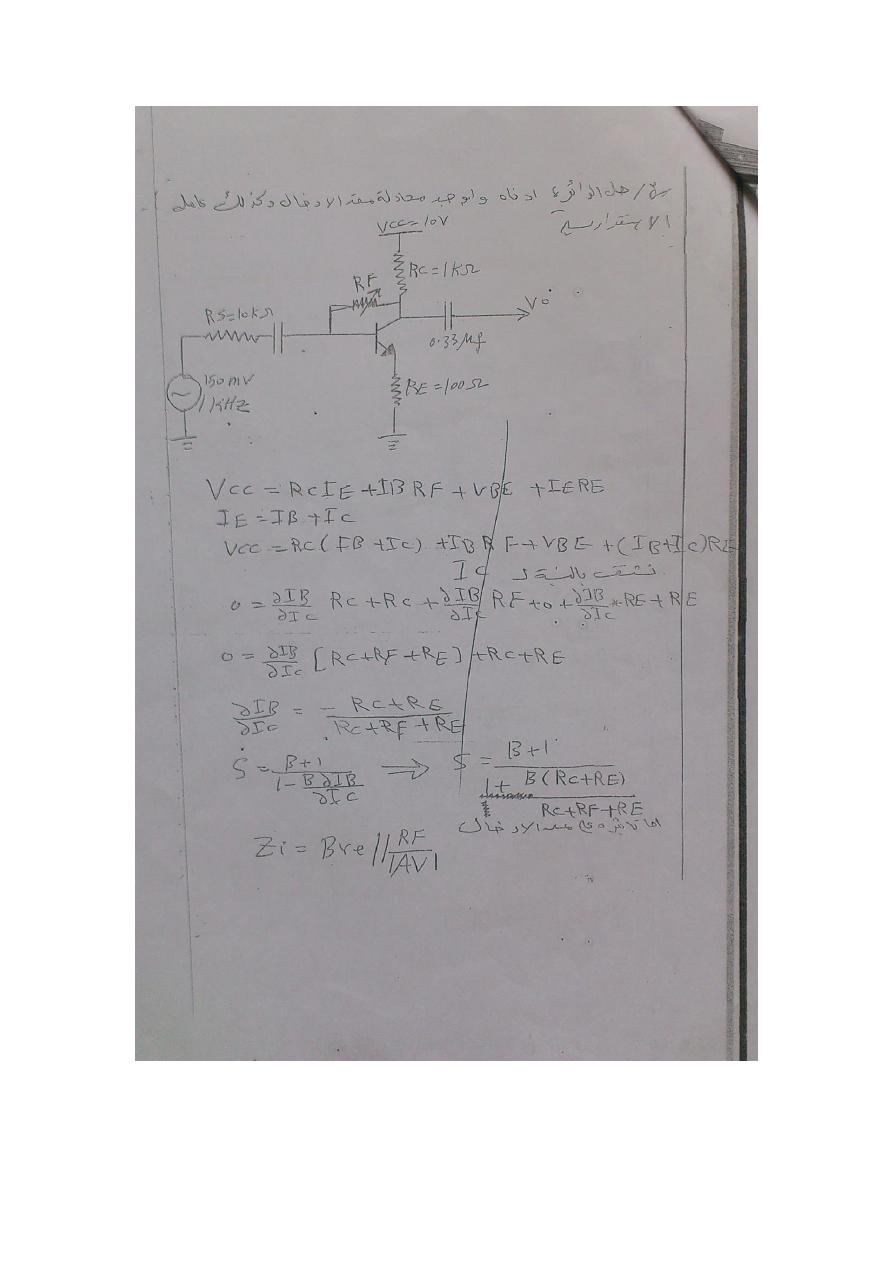 س/ حل الدائرة ادناه واوجد معادلة ممانعة الادخال وكذلك عامل
الاستقرارية
VCC=10V
RC=1KΩ
RF
RS=10KΩ
Vo
0.33 Mf
150mV
1KHZ
RE=100Ω
VCC = RCIE + IB RF + VBE + IERE
IE = IB + IC
VCC = RC(IB + IC) + IB RF + VBE + (IB+IC)RE
نشتق بالنسبة لـ IC
0 = ∂IB/∂IC RC + RC + ∂IB/∂IC RF + 0 + ∂IB/∂IC * RE + RE
0 = ∂IB/∂IC [RC+RF+RE] + RC+RE
∂IB/∂IC = - RC+RE / RC+RF+RE
S = B+1 / 1 - B∂IB/∂IC ⟹ S = B+1 / 1 + B(RC+RE) / RC+RF+RE
الادخال
Zi = Bre // RF / |AV|